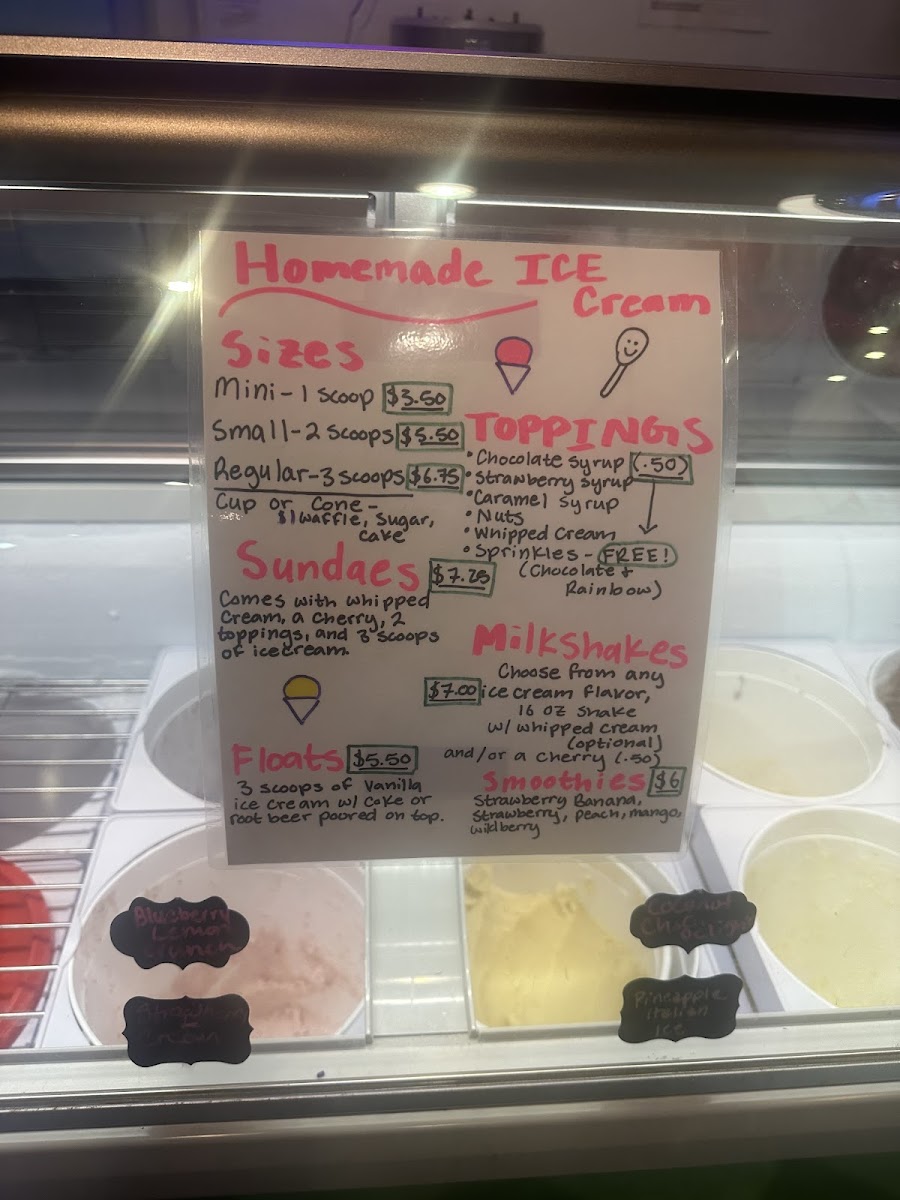 Homemade ICE
Cream
Sizes
Mini-1 scoop $3.50
Small-2 scoops $5.50
Regular-3 scoops $6.75
Cup or cone-
$1 waffle, sugar,
cake
TOPPINGS
• Chocolate syrup (.50)
• Strawberry syrup
• Caramel syrup
• Nuts
• Whipped cream
• Sprinkles - FREE!
(Chocolate +
Rainbow)
Sundaes $7.25
Comes with whipped
cream, a cherry, 2
toppings, and 3 scoops
of icecream.
Milkshakes
Choose from any
$7.00 ice cream flavor,
16 oz shake
w/ whipped cream
(optional)
and/or a cherry (.50)
Floats $5.50
3 scoops of Vanilla
ice cream w/ Coke or
root beer poored on top.
Smoothies $6
Strawberry Banana,
Strawberry, peach, mango,
wildberry
Blueberry
Lemon
Coconut
Pineapple
italian
Ice